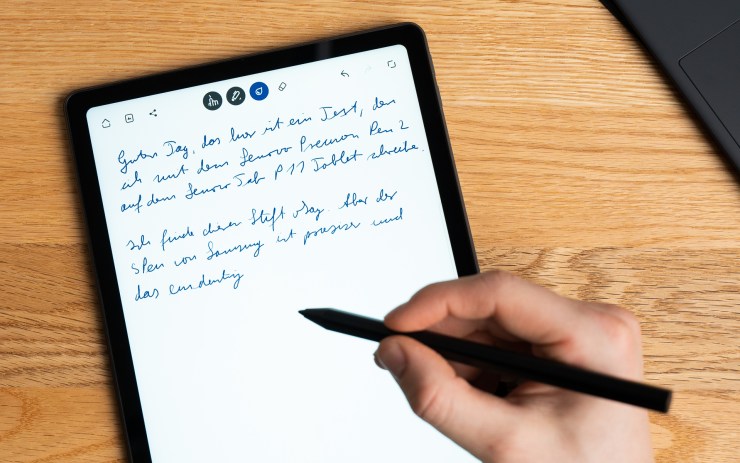 Guten Tag, das hier ist ein Test, den
ich mit dem Lenovo Precision Pen 2
auf dem Lenovo Tab P11 Tablet schreibe.
Ich finde diesen Stift okay. Aber der
SPen von Samsung ist präziser und
das eindeutig